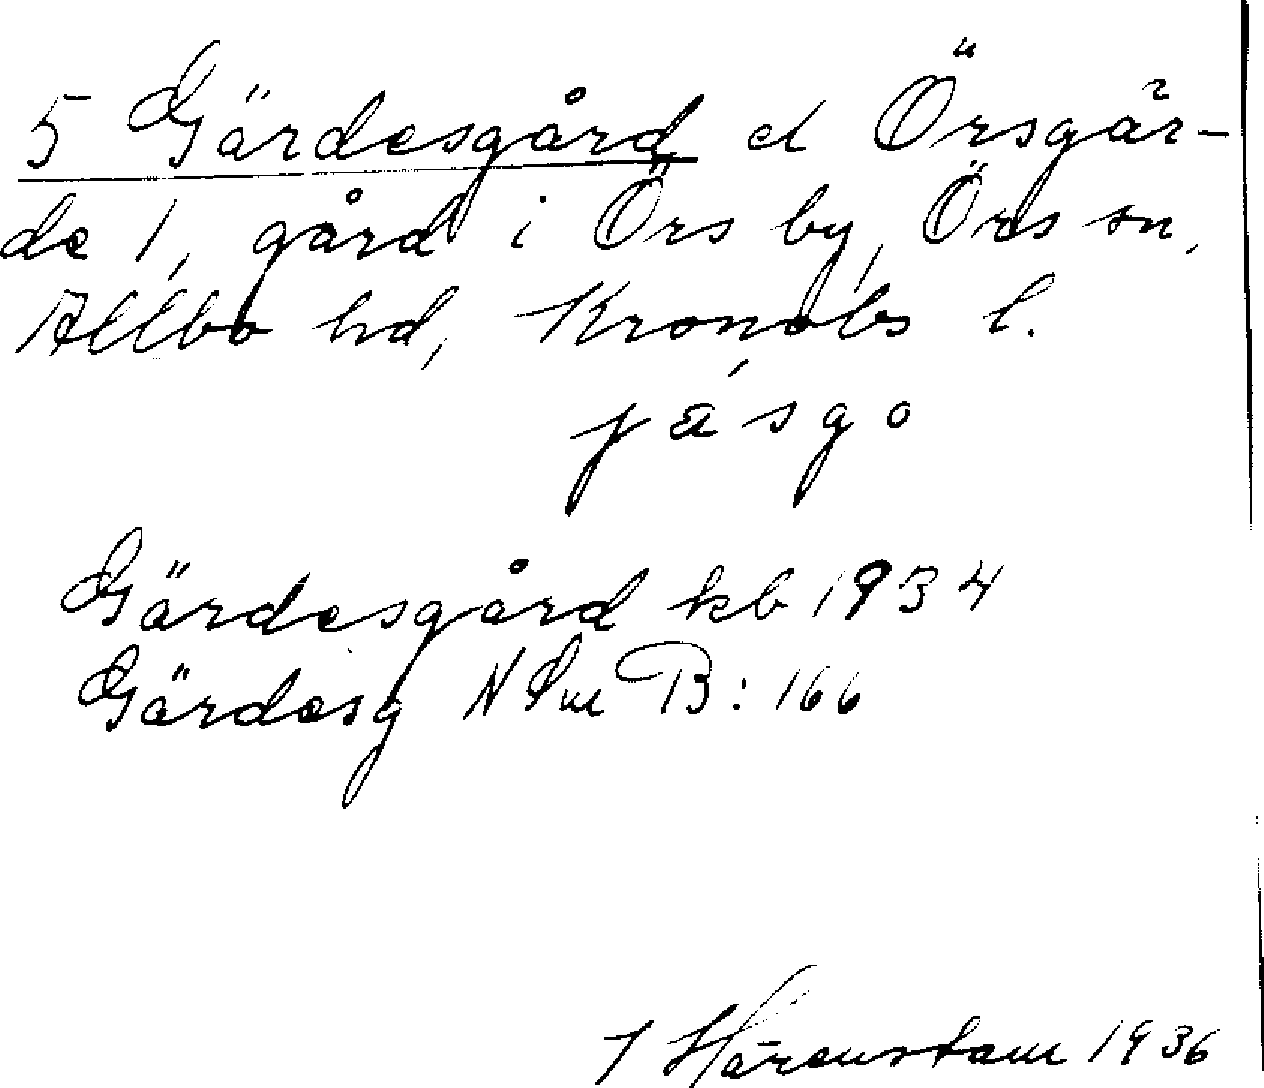 5 Gärdesgård el Örsgär-
de 1, gård i Örs by, Örs sn,
Allbo hd, Kronobs l.
jä́sgo
Gärdesgård kb 1934
Gärdesg N Sm B: 166
J Härenstam 1936